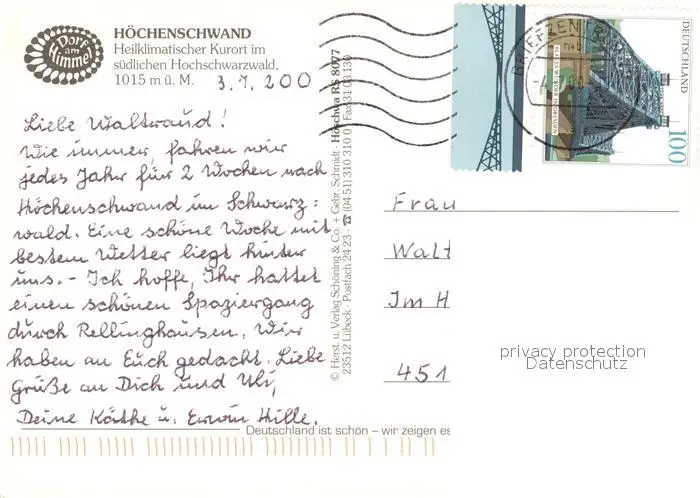 Dorf
am
Himmel
HÖCHENSCHWAND
Heilklimatischer Kurort im
südlichen Hochschwarzwald,
1015 m ü. M. 3.7.200
Liebe Waltraud!
Wie immer, fahren wir
jedes Jahr für 2 Wochen nach
Höchenschwand im Schwarz=
wald. Eine schöne Woche mit
bestem Wetter liegt hinter
uns. - Ich hoffe, Ihr hattet
einen schönen Spaziergang
durch Rellinghausen. Wir
haben an Euch gedacht. Liebe
Grüße an Dich und Uli,
Deine Käthe u. Erwin Hille.
© Herst. u. Verlag Schöning & Co. + Gebr. Schmidt · Höschwa RS 8077
23512 Lübeck · Postfach 24 23 · ☎ (04 51) 310 310 · Fax 31 03 130
BRIEFZENTRUM
DEUTSCHLAND
100
BLAUES WUNDER IN DRESDEN
Frau
Walt
Im H
451
privacy protection
Datenschutz
Deutschland ist schön – wir zeigen es